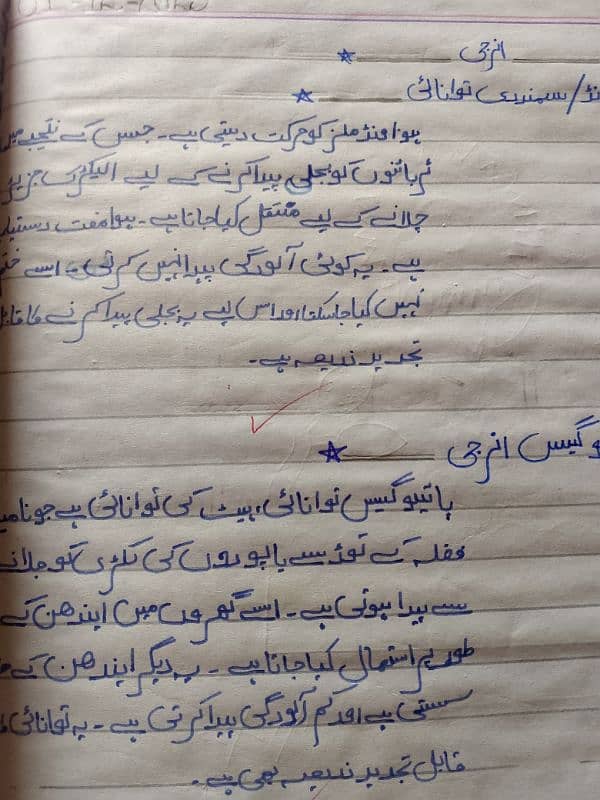 انرجی
نڈ/سمندری توانائی
ہوا ونڈ ملز کو حرکت دیتی ہے۔ جس کے نتیجے میں
ٹربائنوں کو بجلی پیدا کرنے کے لیے الیکٹرک جزیٹر
چلانے کے لیے منتقل کیا جاتا ہے۔ ہوا مفت دستیاب
ہے۔ یہ کوئی آلودگی پیدا نہیں کرتی۔ اسے ختم
نہیں کیا جاسکتا اور اس لیے یہ بجلی پیدا کرنے کا قابل
تجدید ذریعہ ہے۔
و گیس انرجی
بائیو گیس توانائی، ہیٹ کی توانائی ہے جو نامیا
فضلہ کے توڑ سے یا پودوں کی لکڑی کو جلانے
سے پیدا ہوتی ہے۔ اسے گھروں میں ایندھن کے
طور پر استمال کیا جاتا ہے۔ یہ دیگر ایندھن کے
سستی ہے اور کم آلودگی پیدا کرتی ہے۔ یہ توانائی کا
قابل تجدید ذریعہ بھی ہے۔